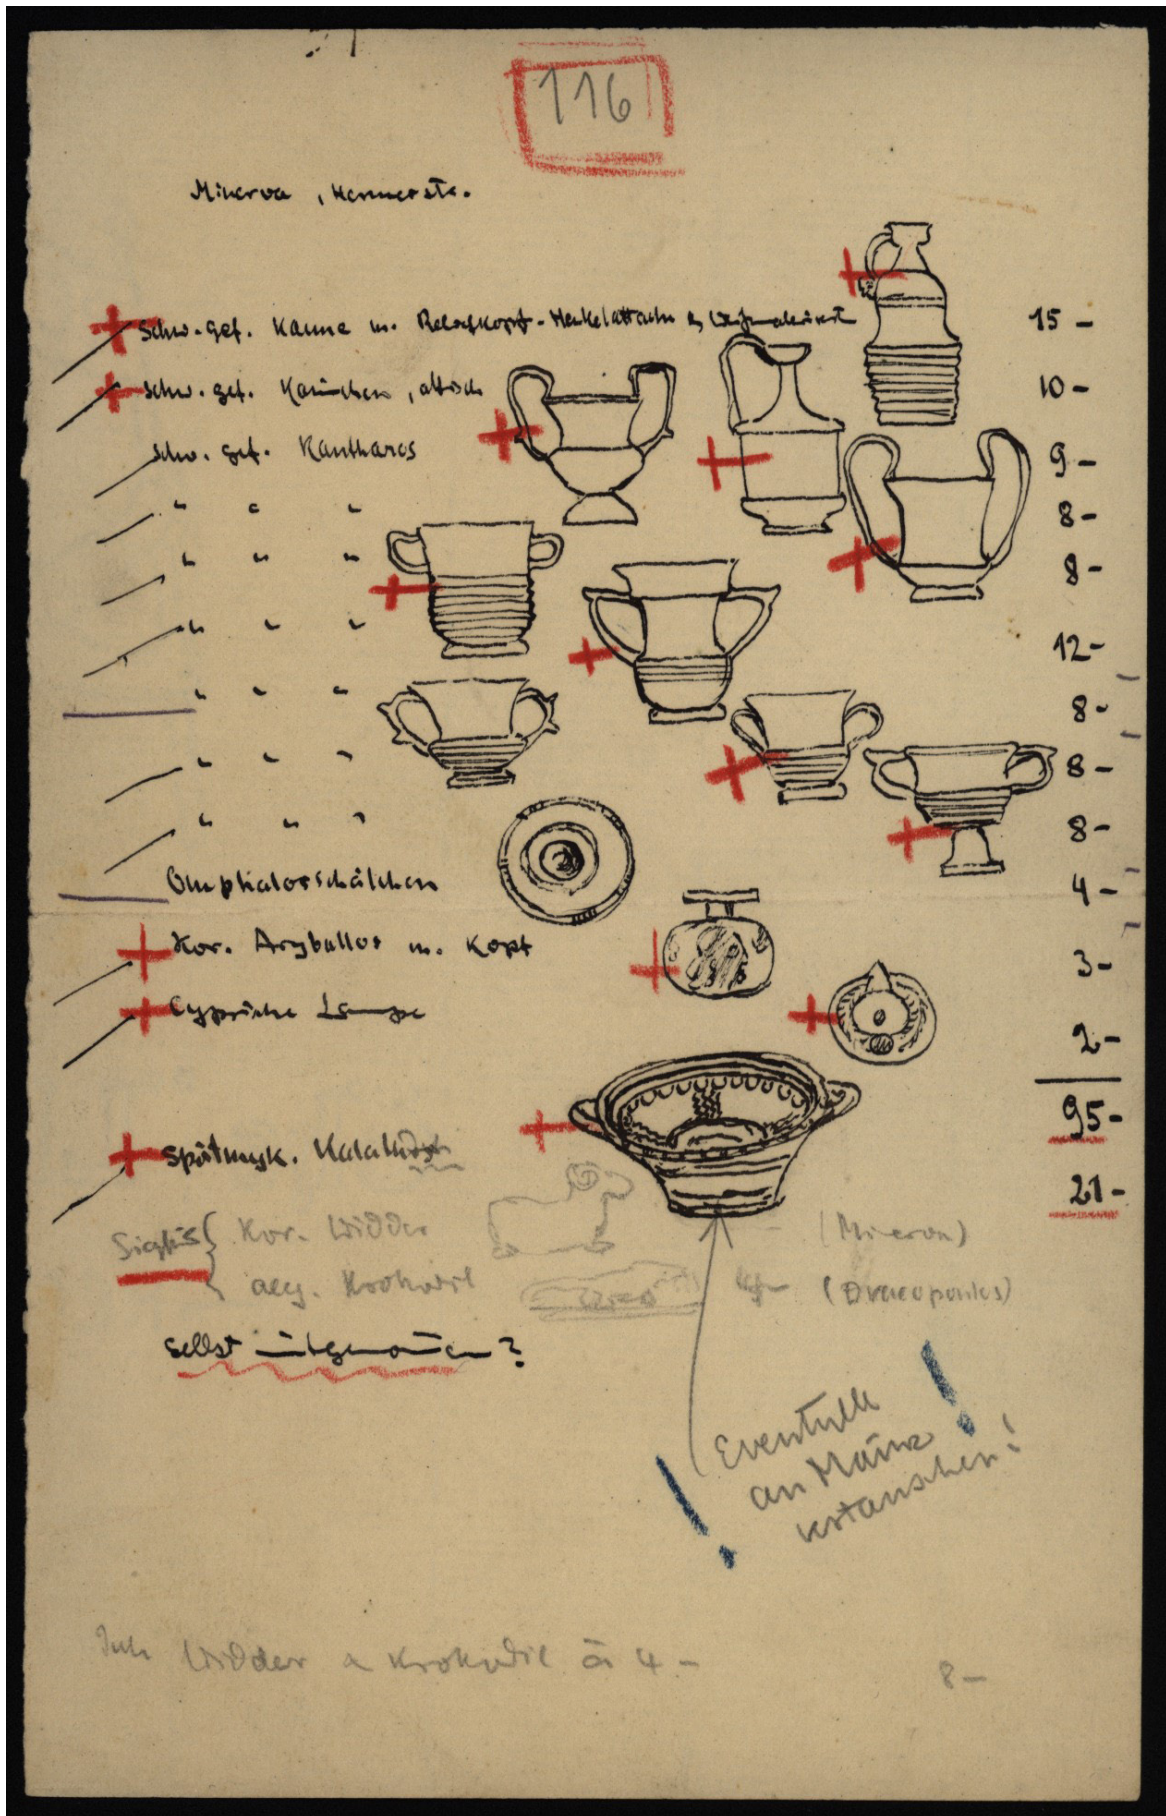 116
Minerva, Hermesstr.
Schw. gef. Kanne m. Reliefkopf-Henkelattache 15 –
Schw. gef. Kännchen, attisch 10 –
Schw. gef. Kantharos 9 –
" " " 8 –
" " " 8 –
" " " 12 –
" " " 8 –
" " " 8 –
" " " 8 –
Omphalosschälchen 4 –
Kor. Aryballos m. Kopf 3 –
Cyprische Lampe 2 –
95 –
Spätmyk. Kalathos 21 –
Kor. Widder – (Minerva)
aeg. Krokodil (Dracopoulos)
selbst mitgenom̄en?
Eventuell
an Mainz
vertauschen!
Widder a Krokodil à 4 – 8 –